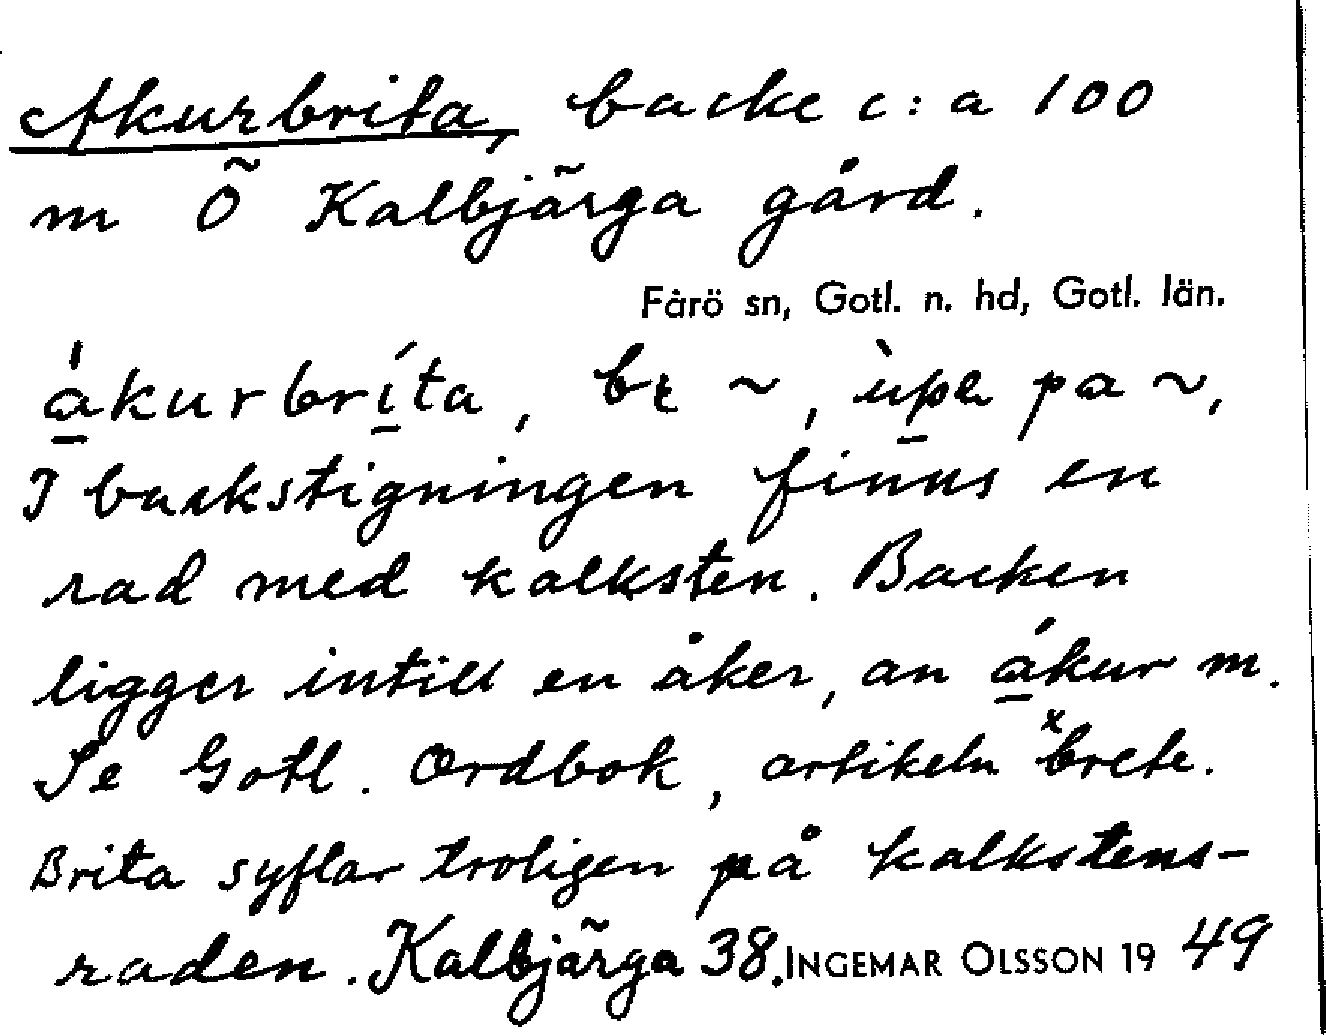 Akurbrita, backe c:a 100
m Ö Kalbjärga gård.
Fårö sn, Gotl. n. hd, Gotl. län.
a̱kurbri̱ta, bɛ ~, ùpa pa ~,
I backstigningen finns en
rad med kalksten. Backen
ligger intill en åker, an á̱kur m.
Se Gotl. Ordbok, artikeln ˣbrete.
Brita syftar troligen på kalkstens-
raden. Kalbjärga 38. INGEMAR OLSSON 1949